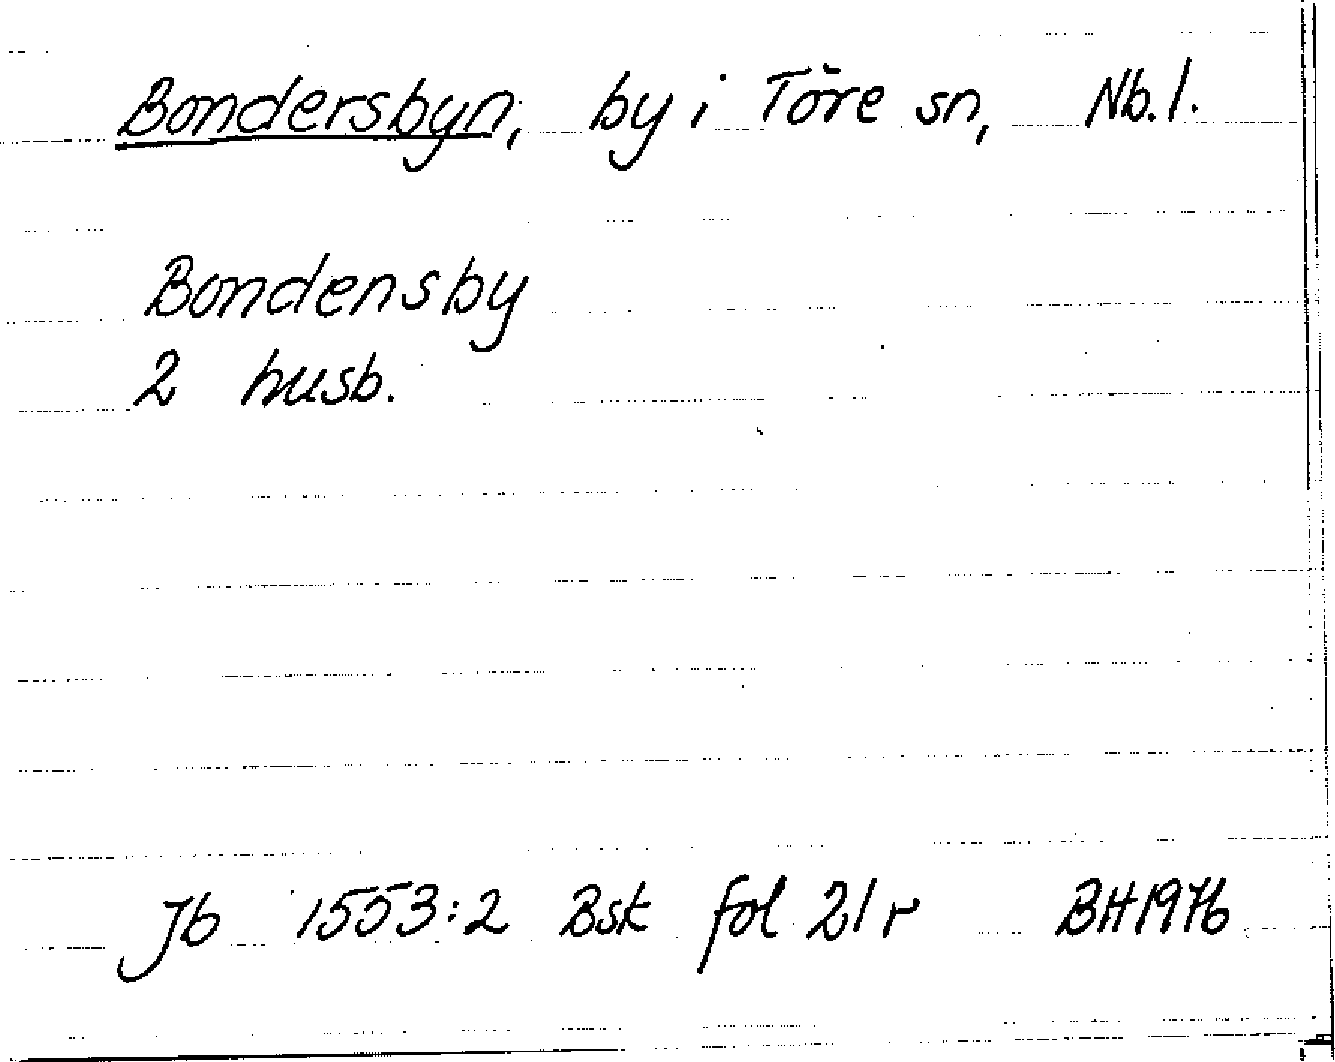 Bondersbyn, by i Töre sn, Nb. l.
Bondensby
2 husb.
Jb 1553:2 Bsk fol 21 r BH 1976